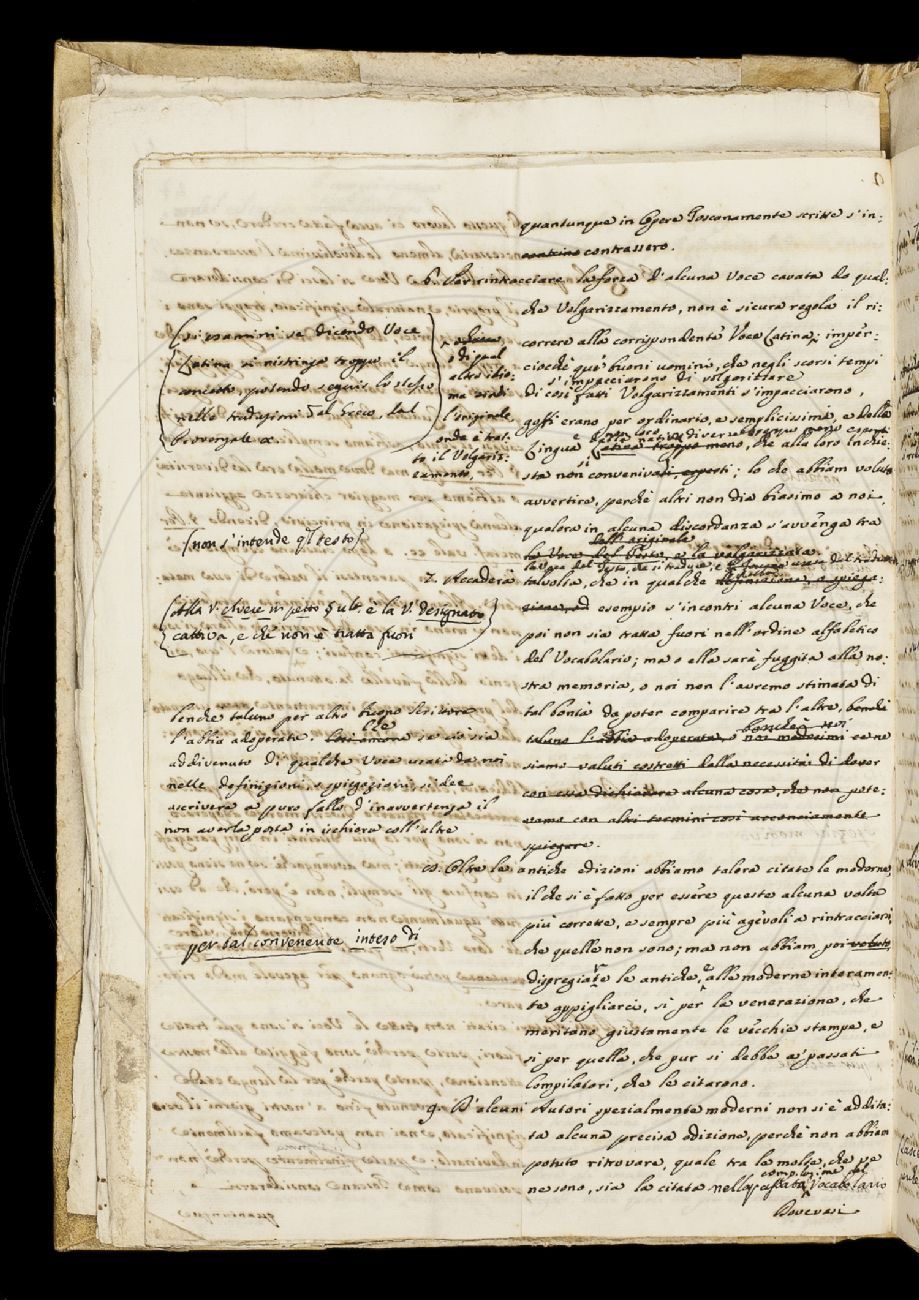 quantunque in Opere Toscanamente scritte s'in=
contrassero.
6. Per rintracciare la forza d'alcuna Voce cavata da qual=
che Volgarizzamento, non è sicura regola il ri=
correre alla corrispondente Voce Latina; imper=
ciocchè que' buoni uomini, che negli scorsi tempi
s'impacciarono di volgarizzare
di così fatti Volgarizzamenti s'impacciarono,
goffi erano per ordinario, e semplicissimi, e della
Lingua Latina troppo meno, che alla loro Inchie=
sta non conveniva esperti; lo che abbiam voluto
avvertire, perchè altri non dia biasimo a noi,
qualora in alcuna discordanza s'avvenga tra
dell'originale
la Voce del Testo, e la volgarizzata.
7. Accaderà talvolta, che in qualche definizione, o spiega=
zione, ad esempio s'incontri alcuna Voce, che
poi non sia tratta fuori nell'ordine alfabetico
del Vocabolario; ma o ella sarà fuggita alla no=
stra memoria, o noi non l'avremo stimata di
tal bontà da poter comparire tra l'altre, benchè
benchè noi
taluno l'abbia adoperata, o noi medesimi ce ne
siamo valuti costretti dalla necessità di dover
con essa dichiarare alcuna cosa, che non pote=
vamo con altri termini così acconciamente
spiegare.
8. Oltre le antiche edizioni abbiamo talora citate le moderne,
il che si è fatto per essere queste alcuna volta
più corrette, e sempre più agevoli a rintracciarsi,
che quelle non sono; ma non abbiam poi voluto
dispregiare le antiche, e alle moderne interamen=
te appigliarci, sì per la venerazione, che
meritano giustamente le vecchie stampe, e
sì per quella, che pur si debbe a' passati
Compilatori, che le citarono.
9. D'alcuni Autori spezialmente moderni non si è addita=
ta alcuna precisa edizione, perchè non abbiam
potuto ritrovare, quale tra le molte, che ve
ne sono, sia la citata nella passata Vocabolario
Dovevasi
[si esamini se dicendo Voce
Latina si ristringa troppo il
concetto, potendo seguir lo stesso
nelle traduzioni dal Greco, dal
Provenzale &c.
o di qual
altro idio=
ma sia
l'originale
onde è trat=
to il Volgariz=
zamento,
[non s'intende ql testo]
[Alla V. chieve in petto §ult. è la V. designato
cattiva, e che non è tratta fuori
benchè taluno per altro buono Scrittore
l'abbia adoperata. Che se ciò sia
addivenuto di qualche Voce usata da noi
nelle definizioni, e spiegazioni, si dee
ascrivere a puro fallo d'inavvertenza il
non averla posta in ischiera coll'altre
per tal convenente inteso di